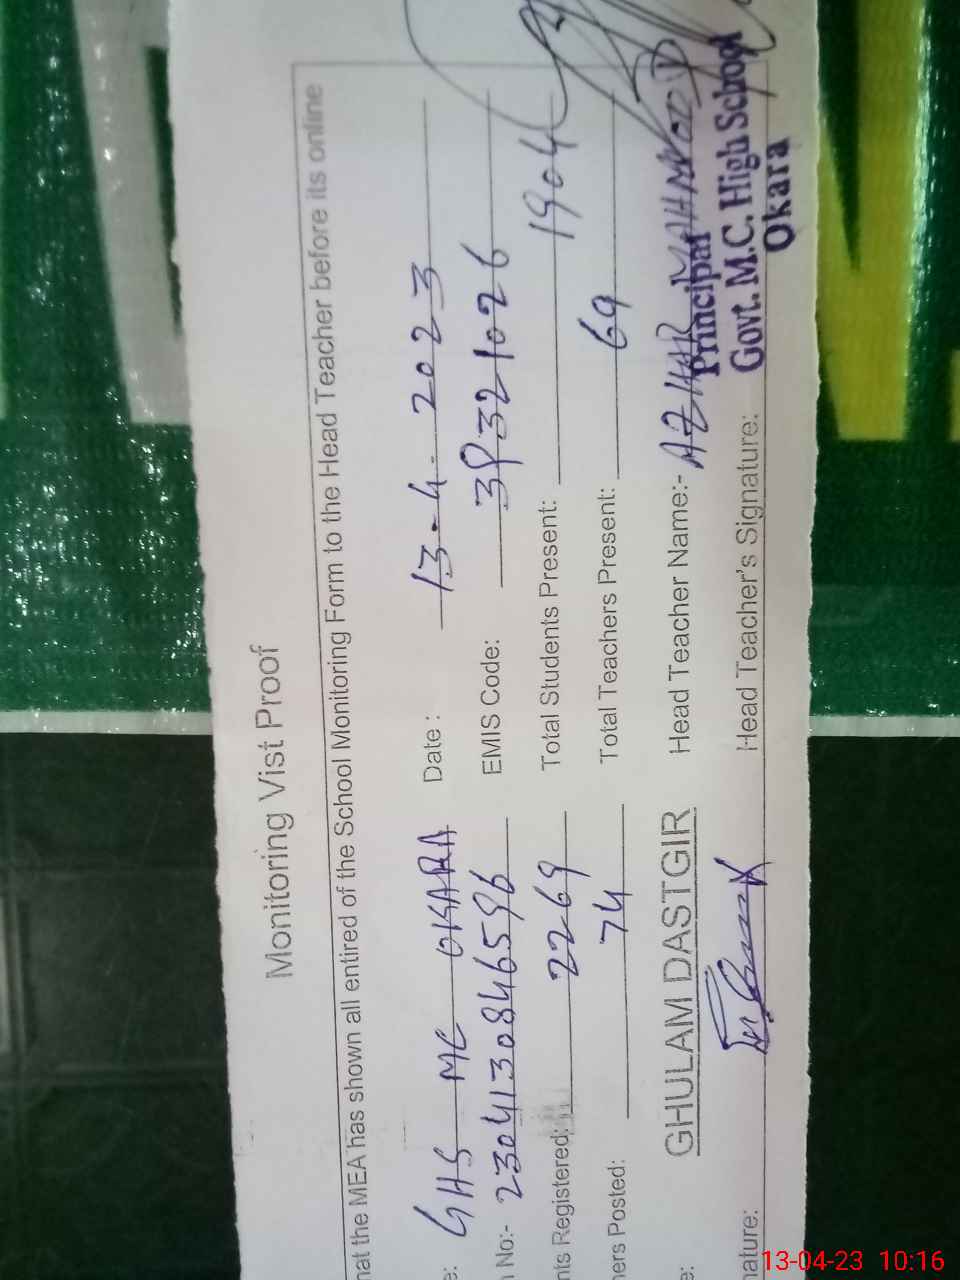 Monitoring Vist Proof
hat the MEA has shown all entired of the School Monitoring Form to the Head Teacher before its online
e: GHS MC OKARA Date : 13-4-2023
n No:- 23041308465 96 EMIS Code: 39321026
nts Registered: 2269 Total Students Present: 1904
ners Posted: 74 Total Teachers Present: 69
e: GHULAM DASTGIR Head Teacher Name:- AZHAR MAHMOOD
nature: Head Teacher's Signature:
Principal
Govt. M.C. High School
Okara
13-04-23 10:16